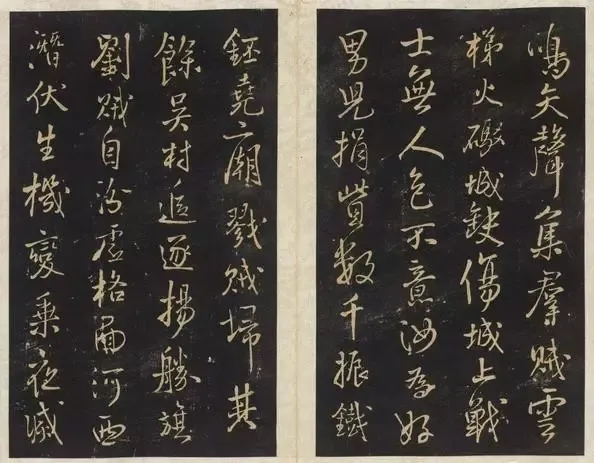 鳴矢聲集羣賊雲
梯火礮城缺傷城上戰
士無人色不意汝為好
男兒捐貲數千振鐵
鉦堯二戮賊埽其
餘吳村追逐揚勝旗
劉賊自汾虛格河西
潛伏生機變乘夜滅